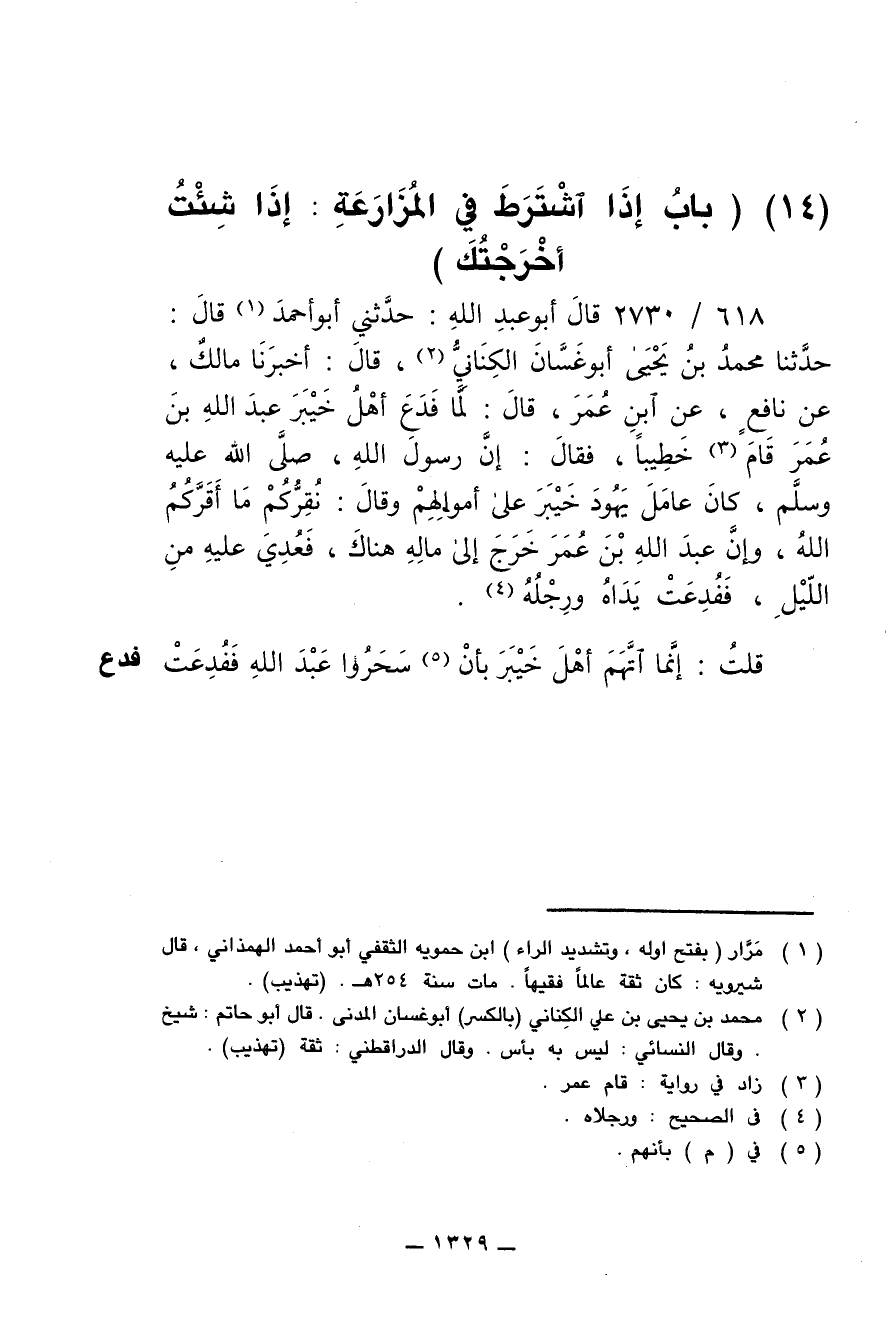 (١٤) ( بابُ إذَا ٱشْتَرَطَ في المُزَارَعَةِ : إذَا شِئْتُ
أخْرَجْتُكَ )
٦١٨ / ٢٧٣٠ قالَ أبوعبدِ اللهِ : حدَّثني أبوأحمدَ (١) قالَ :
حدَّثنا محمدُ بنُ يَحْيَىٰ أبوغَسَّانَ الكِنَانيُّ (٢) ، قالَ : أخبرَنَا مالكٌ ،
عن نافعٍ ، عن ٱبنِ عُمَرَ ، قالَ : لَمَّا فَدَعَ أهْلُ خَيْبَرَ عبدَ اللهِ بنَ
عُمَرَ قَامَ (٣) خَطِيباً ، فقالَ : إنَّ رسولَ اللهِ ، صلَّى الله عليه
وسلَّم ، كانَ عامَلَ يَهُودَ خَيْبَرَ علىٰ أموالِهِمْ وقالَ : نُقِرُّكُمْ مَا أَقَرَّكُمُ
اللهُ ، وإنَّ عبدَ اللهِ بْنَ عُمَرَ خَرَجَ إلىٰ مالِهِ هناكَ ، فَعُدِيَ عليهِ منِ
اللّيْلِ ، فَفُدِعَتْ يَدَاهُ ورِجْلُهُ (٤) .
قلتُ : إنَّما ٱتَّهَمَ أهْلَ خَيْبَرَ بأنْ (٥) سَحَرُوا عَبْدَ اللهِ فَفُدِعَتْ فدع
( ١ ) مَرَّار ( بفتح اوله ، وتشديد الراء ) ابن حمويه الثقفي أبو أحمد الهمذاني ، قال
شيرويه : كان ثقة عالماً فقيهاً . مات سنة ٢٥٤هـ . (تهذيب) .
( ٢ ) محمد بن يحيى بن علي الكِناني (بالكسر) أبوغسان المدنى . قال أبو حاتم : شيخ
. وقال النسائي : ليس به بأس . وقال الدراقطني : ثقة (تهذيب) .
( ٣ ) زاد في رواية : قام عمر .
( ٤ ) فى الصحيح : ورجلاه .
( ٥ ) في ( م ) بأنهم .
– ١٣٢٩ –